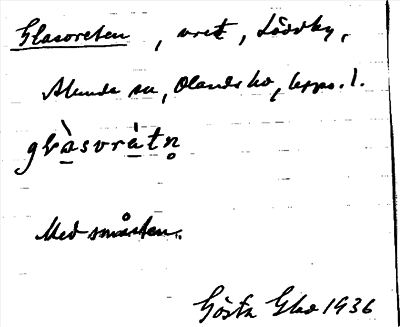 Glasvreten, vret, Lövsby,
Alunda sn, Olands hd, Upps. l.
glàsvràtn̥
Med småsten.
Gösta Ehd 1936